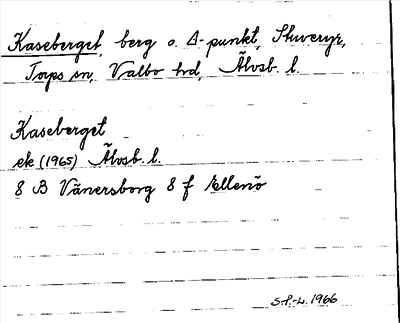 Kaseberget, berg o. Δ-punkt, Stuveryr,
Torps sn, Valbo hd, Älvsb. l.
Kaseberget
ek (1965) Älvsb. l.
8 B Vänersborg 8 f Ellenö
S.P.-L. 1966